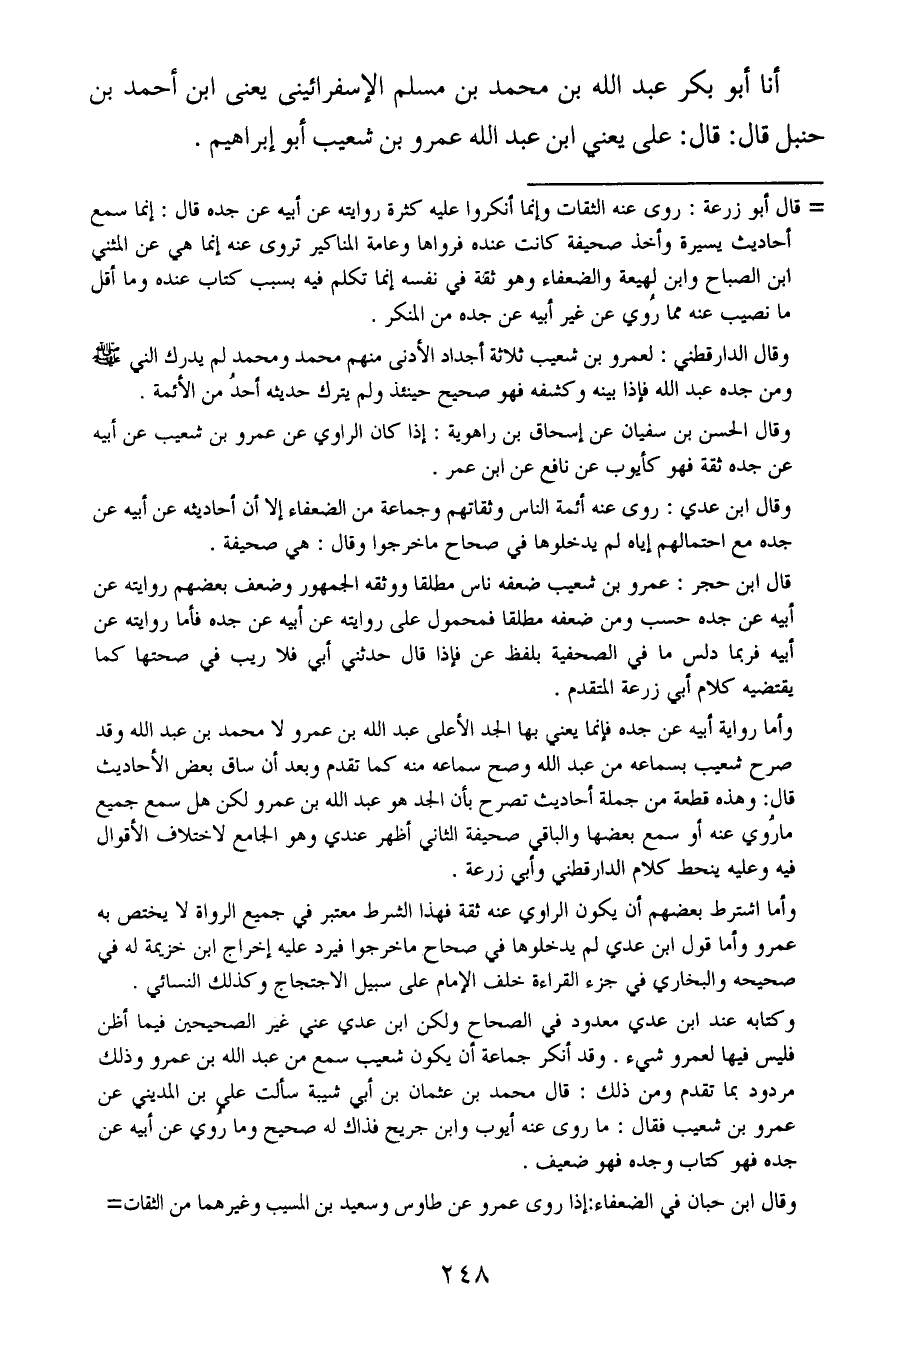 أنا أبو بكر عبد الله بن محمد بن مسلم الإسفرائينى يعنى ابن أحمد بن
حنبل قال: قال: على يعني ابن عبد الله عمرو بن شعيب أبو إبراهيم .
= قال أبو زرعة : روى عنه الثقات وإنما أنكروا عليه كثرة روايته عن أبيه عن جده قال : إنما سمع
أحاديث يسيرة وأخذ صحيفة كانت عنده فرواها وعامة المناكير تروى عنه إنما هي عن المثني
ابن الصباح وابن لهيعة والضعفاء وهو ثقة في نفسه إنما تكلم فيه بسبب كتاب عنده وما أقل
ما نصيب عنه مما رُوي عن غير أبيه عن جده من المنكر .
وقال الدارقطني : لعمرو بن شعيب ثلاثة أجداد الأدنى منهم محمد ومحمد لم يدرك النبي ﷺ
ومن جده عبد الله فإذا بينه وكشفه فهو صحيح حينئذ ولم يترك حديثه أحدُ من الأئمة .
وقال الحسن بن سفيان عن إسحاق بن راهوية : إذا كان الراوي عن عمرو بن شعيب عن أبيه
عن جده ثقة فهو كأيوب عن نافع عن ابن عمر .
وقال ابن عدي : روى عنه أئمة الناس وثقاتهم وجماعة من الضعفاء إلا أن أحاديثه عن أبيه عن
جده مع احتمالهم إياه لم يدخلوها في صحاح ماخرجوا وقال : هي صحيفة .
قال ابن حجر : عمرو بن شعيب ضعفه ناس مطلقا ووثقه الجمهور وضعف بعضهم روايته عن
أبيه عن جده حسب ومن ضعفه مطلقا فمحمول على روايته عن أبيه عن جده فأما روايته عن
أبيه فربما دلس ما في الصحفية بلفظ عن فإذا قال حدثني أبي فلا ريب في صحتها كما
يقتضيه كلام أبي زرعة المتقدم .
وأما رواية أبيه عن جده فإنما يعني بها الجد الأعلى عبد الله بن عمرو لا محمد بن عبد الله وقد
صرح شعيب بسماعه من عبد الله وصح سماعه منه كما تقدم وبعد أن ساق بعض الأحاديث
قال: وهذه قطعة من جملة أحاديث تصرح بأن الجد هو عبد الله بن عمرو لكن هل سمع جميع
مارُوي عنه أو سمع بعضها والباقي صحيفة الثاني أظهر عندي وهو الجامع لاختلاف الأقوال
فيه وعليه ينحط كلام الدارقطني وأبي زرعة .
وأما اشترط بعضهم أن يكون الراوي عنه ثقة فهذا الشرط معتبر في جميع الرواة لا يختص به
عمرو وأما قول ابن عدي لم يدخلوها في صحاح ماخرجوا فيرد عليه إخراج ابن خزيمة له في
صحيحه والبخاري في جزء القراءة خلف الإمام على سبيل الاجتجاج وكذلك النسائي .
وكتابه عند ابن عدي معدود في الصحاح ولكن ابن عدي عني غير الصحيحين فيما أظن
فليس فيها لعمرو شيء . وقد أنكر جماعة أن يكون شعيب سمع من عبد الله بن عمرو وذلك
مردود بما تقدم ومن ذلك : قال محمد بن عثمان بن أبي شيبة سألت علي بن المديني عن
عمرو بن شعيب فقال : ما روى عنه أيوب وابن جريح فذاك له صحيح وما رُوي عن أبيه عن
جده فهو كتاب وجده فهو ضعيف .
وقال ابن حبان في الضعفاء:إذا روى عمرو عن طاوس وسعيد بن المسيب وغيرهما من الثقات=
٢٤٨